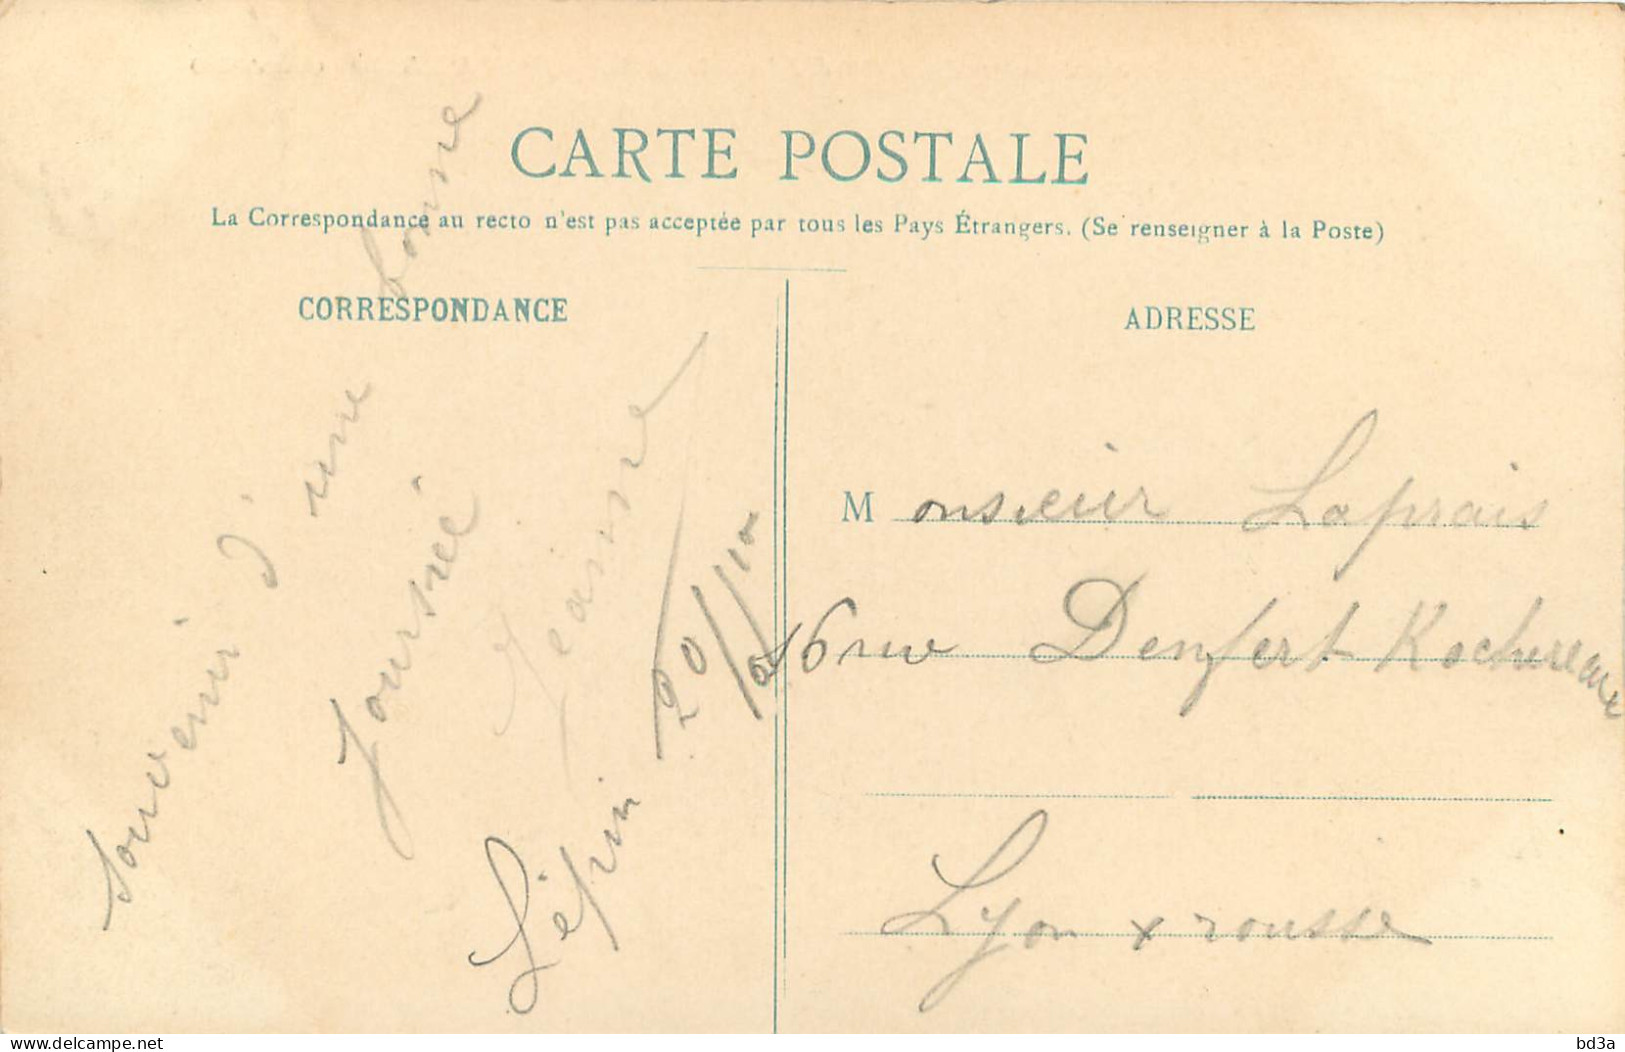 CARTE POSTALE
La Correspondance au recto n'est pas acceptée par tous les Pays Étrangers. (Se renseigner à la Poste)
CORRESPONDANCE
souvenir d'une bonne
journée
Jeanne
Lépin 20/10
ADRESSE
Monsieur Laprais
rue Denfert Rochereau
Lyon x rousse
www.delcampe.net
bd3a